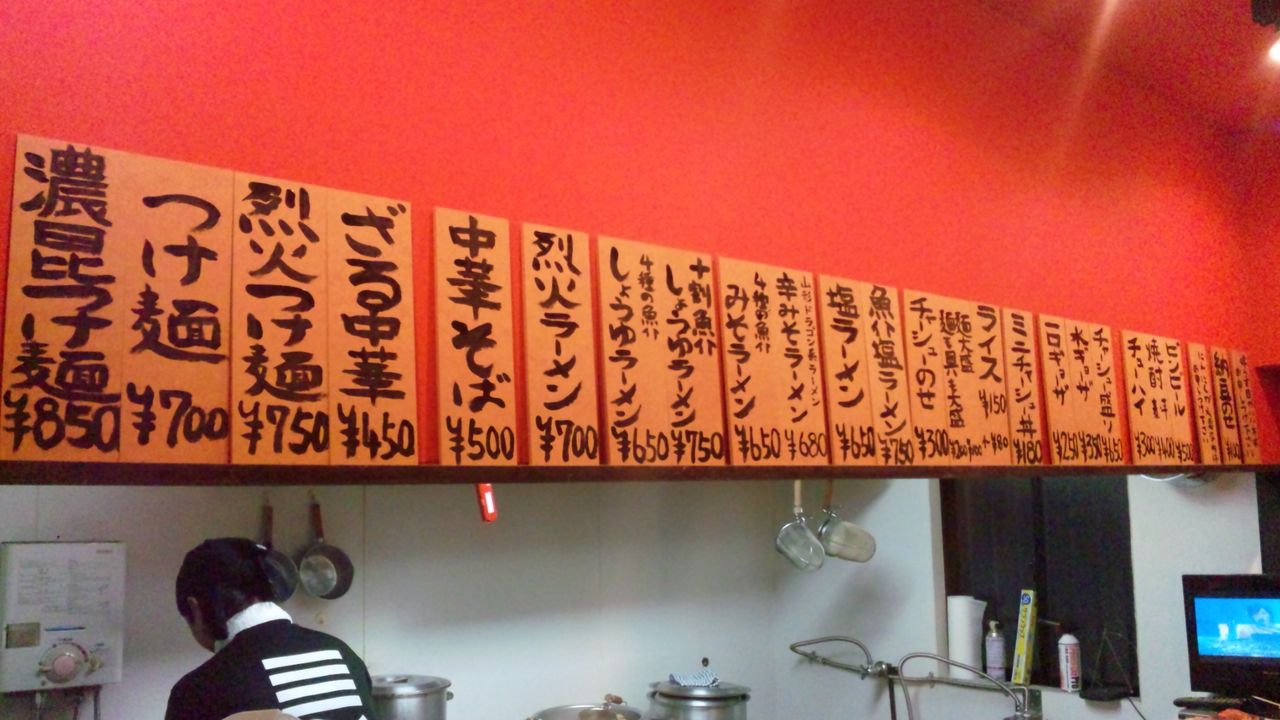 濃昆つけ麺
¥850
つけ麺
¥700
烈火つけ麺
¥750
ざる中華
¥450
中華そば
¥500
烈火ラーメン
¥700
4種の魚介
しょうゆラーメン
¥650
十割魚介
しょうゆラーメン
¥750
4種の魚介
みそラーメン
¥650
山形ドラゴン系ラーメン
辛みそラーメン
¥680
塩ラーメン
¥650
魚介塩ラーメン
¥750
チャーシューのせ
¥300
麺大盛
ライス
¥150
ミニチャーシュー丼
¥180
¥250
水ギョーザ
¥350
チャーシュー盛り
¥650
チューハイ
¥300
焼酎
¥400
ビンビール
¥500